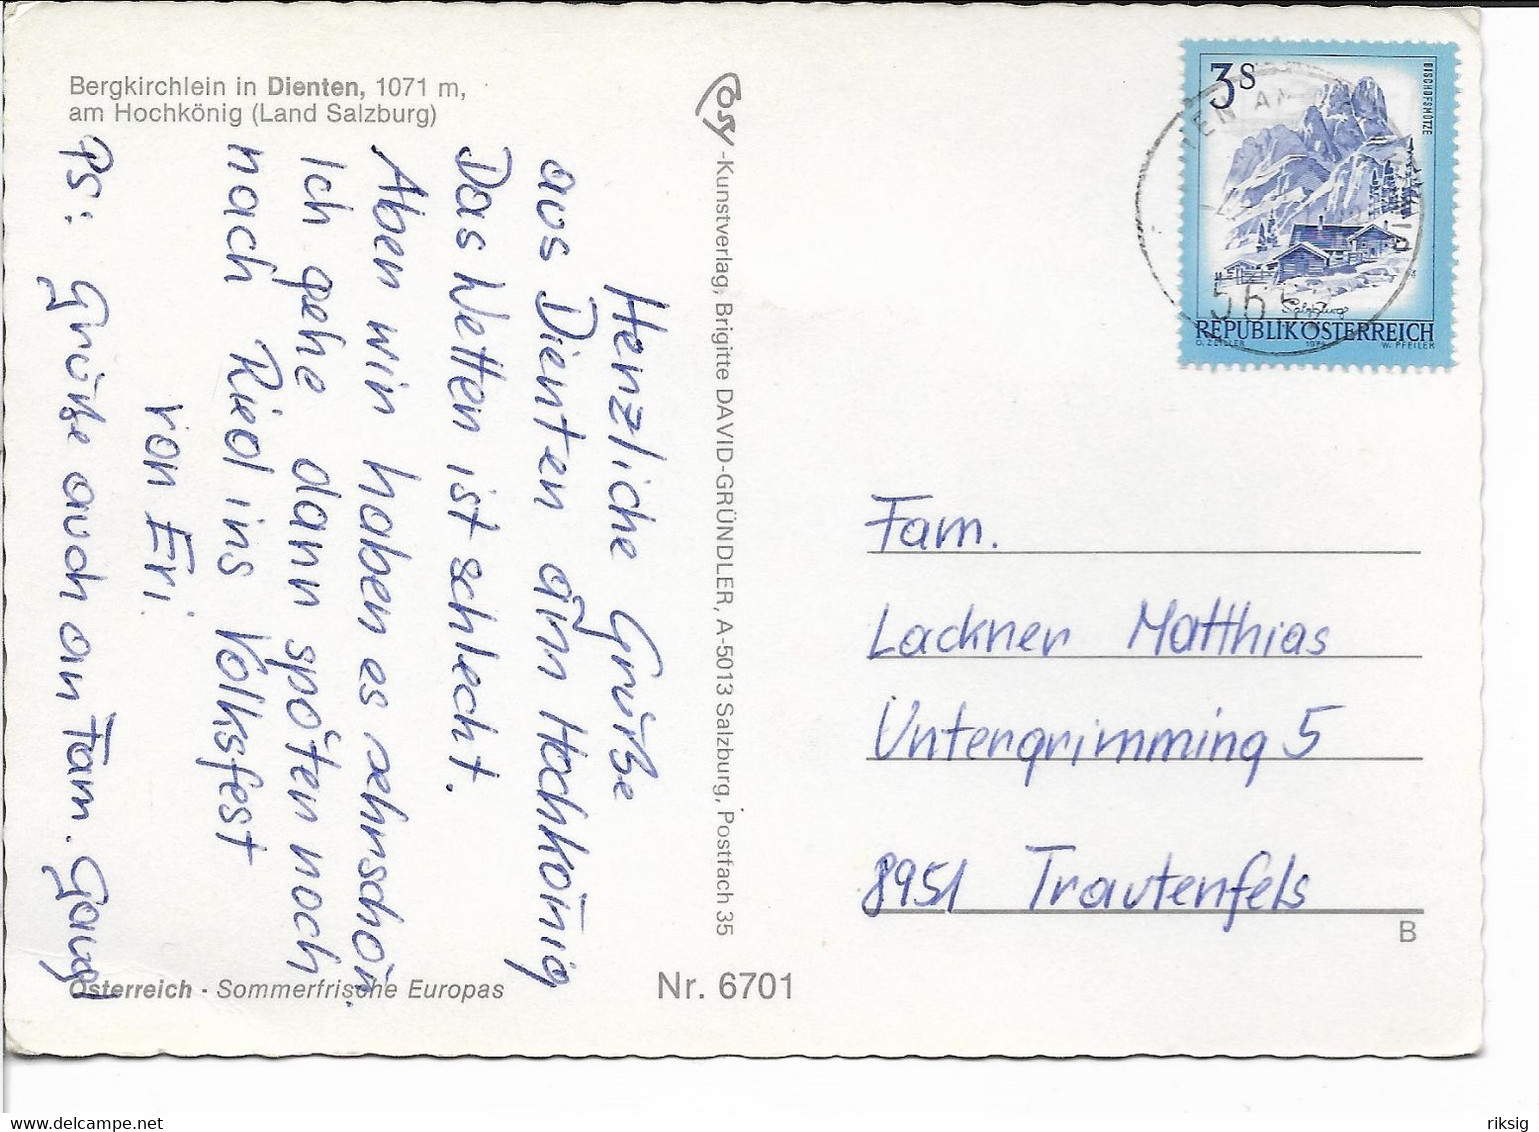 Bergkirchlein in Dienten, 1071 m,
am Hochkönig (Land Salzburg)
Herzliche Grüße
aus Dienten am Hochkönig
Das Wetter ist schlecht.
Aber wir haben es sehr schön.
Ich gehe dann später noch
nach Ried ins Volksfest
von Eri
PS: Grüße auch an Fam.
Österreich - Sommerfrische Europas
Cosy-Kunstverlag, Brigitte DAVID-GRÜNDLER, A-5013 Salzburg, Postfach 35
Nr. 6701
3S
BISCHOFSMÜTZE
Salzburg
REPUBLIK ÖSTERREICH
O. ZEILLER W. PFEILER
Fam.
Lackner Matthias
Untergrimming 5
8951 Trautenfels
B
www.delcampe.net
riksig